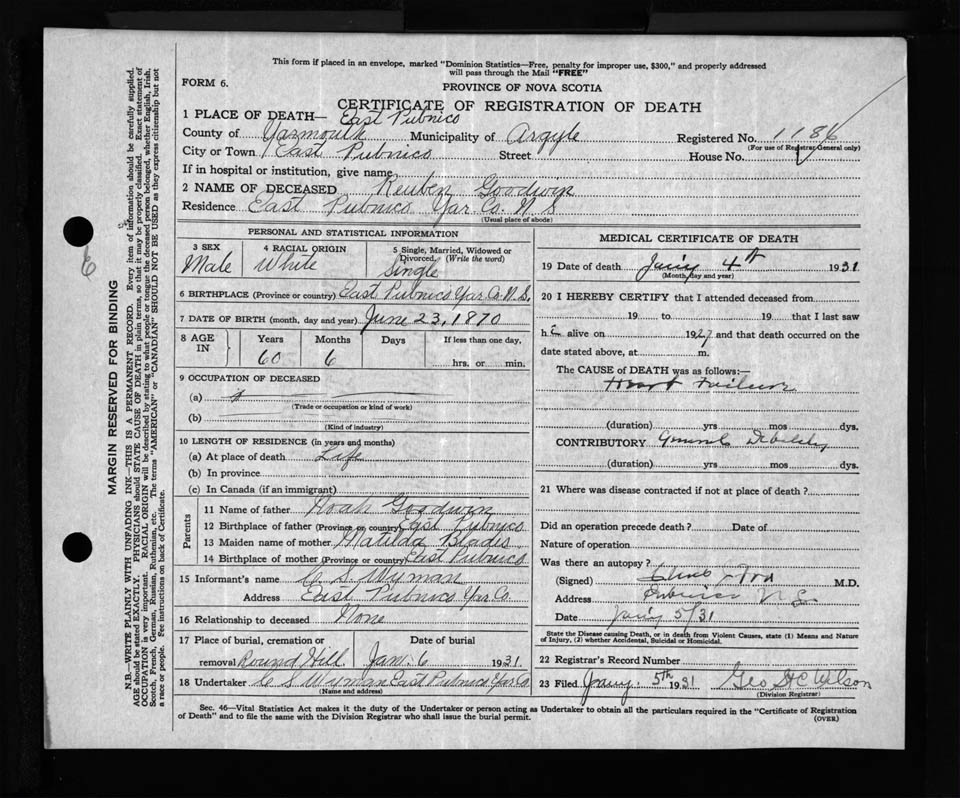 This form if placed in an envelope, marked "Dominion Statistics—Free, penalty for improper use, $300," and properly addressed
will pass through the Mail "FREE"
FORM 6.
PROVINCE OF NOVA SCOTIA
CERTIFICATE OF REGISTRATION OF DEATH
1 PLACE OF DEATH— East Pubnico
County of Yarmouth Municipality of Argyle Registered No. 1186
(For use of Registrar General only)
City or Town East Pubnico Street House No.
If in hospital or institution, give name
2 NAME OF DECEASED Reuben Goodwin
Residence East Pubnico Yar. Co. N. S
(Usual place of abode)
PERSONAL AND STATISTICAL INFORMATION
3 SEX 4 RACIAL ORIGIN 5 Single, Married, Widowed or
Divorced. (Write the word)
Male White Single
6 BIRTHPLACE (Province or country) East Pubnico Yar Co. N. S.
7 DATE OF BIRTH (month, day and year) June 23, 1870
8 AGE IN Years Months Days If less than one day,
60 6 hrs. or min.
9 OCCUPATION OF DECEASED
(a)
(Trade or occupation or kind of work)
(b)
(Kind of industry)
10 LENGTH OF RESIDENCE (in years and months)
(a) At place of death Life
(b) In province
(c) In Canada (if an immigrant)
Parents
11 Name of father Noah Goodwin
12 Birthplace of father (Province or country) East Pubnico
13 Maiden name of mother Matilda Blades
14 Birthplace of mother (Province or country) East Pubnico
15 Informant's name C. S. Wyman
Address East Pubnico Yar Co.
16 Relationship to deceased None
17 Place of burial, cremation or Date of burial
removal Round Hill Jan. 6 1931.
18 Undertaker C S Wyman East Pubnico Yar Co
(Name and address)
MEDICAL CERTIFICATE OF DEATH
19 Date of death Jan'y 4th 1931
(Month, day and year)
20 I HEREBY CERTIFY that I attended deceased from
19 to 19 that I last saw
h e alive on 1927 and that death occurred on the
date stated above, at m.
The CAUSE of DEATH was as follows:—
Heart Failure
(duration) yrs mos dys.
CONTRIBUTORY General Debility
(duration) yrs mos dys.
21 Where was disease contracted if not at place of death?
Did an operation precede death? Date of
Nature of operation
Was there an autopsy?
(Signed) M.D.
Address Pubnico N.S.
Date Jan'y 5/31
State the Disease causing Death, or in death from Violent Causes, state (1) Means and Nature
of Injury, (2) whether Accidental, Suicidal or Homicidal.
22 Registrar's Record Number
23 Filed Jany. 5th 1931 Geo H C Wilson
(Division Registrar)
Sec. 46—Vital Statistics Act makes it the duty of the Undertaker or person acting as Undertaker to obtain all the particulars required in the "Certificate of Registration
of Death" and to file the same with the Division Registrar who shall issue the burial permit.
(OVER)
MARGIN RESERVED FOR BINDING
N.B.—WRITE PLAINLY WITH UNFADING INK—THIS IS A PERMANENT RECORD. Every item of information should be carefully supplied.
AGE should be stated EXACTLY. PHYSICIANS should STATE CAUSE OF DEATH in plain terms, so that it may be properly classified. Exact statement of
OCCUPATION is very important. RACIAL ORIGIN will be described by stating to what people or tongue the deceased person belonged, whether English, Irish,
Scotch, French, German, Russian, Ruthenian, etc. The terms "AMERICAN" or "CANADIAN" SHOULD NOT BE USED as they express citizenship but not
a race or people. Fee instructions on back of Certificate.